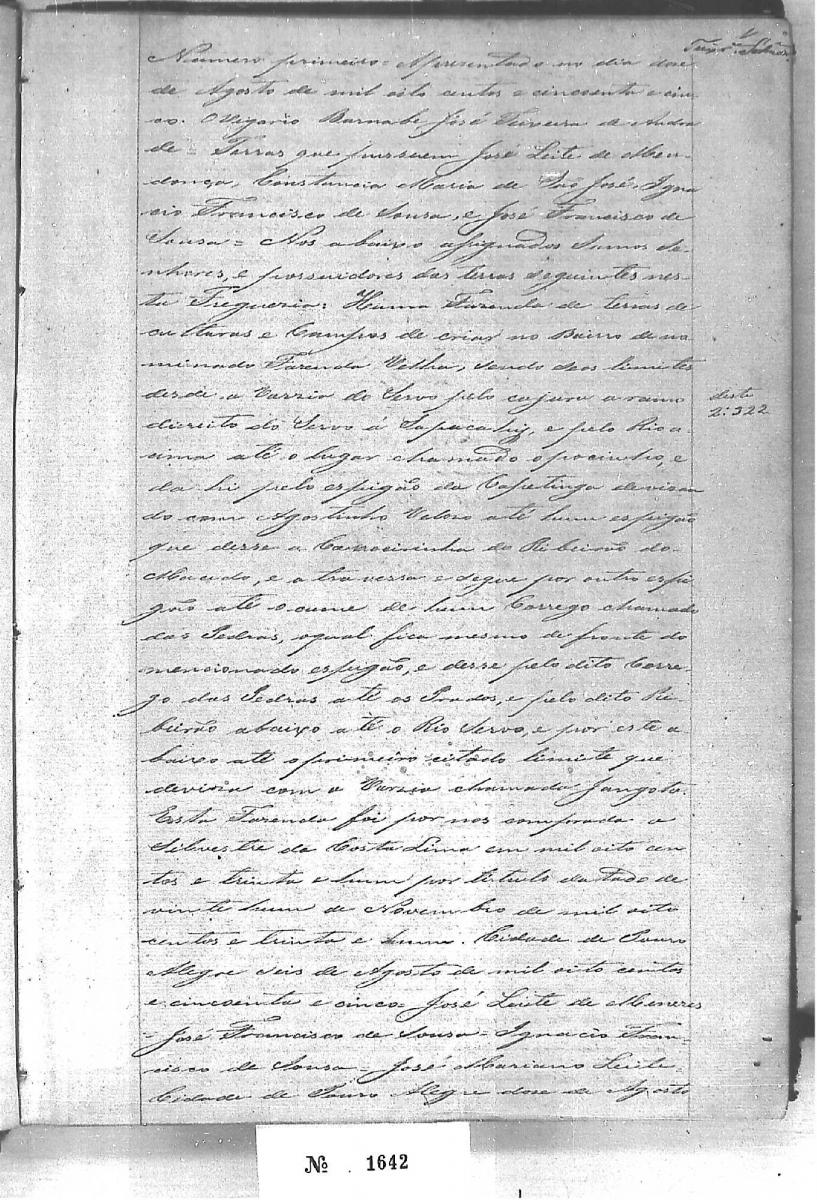 1
Numero primeiro = Apresentado no dia dose
de Agosto de mil oito centos e cincoenta e cin
co. O Vigario Barnabe José Teixeira de Andra
de = Terras que possuem José Leite de Men-
donça, Constancia Maria de São José, Igna
cio Francisco de Sousa, e José Francisco de
Sousa = Nos abaixo assignados somos se-
nhores, e possuidores das terras seguintes nes-
ta Freguezia: Huma Fazenda de terras de
culturas e Campos de criar no Bairro deno
minado Fazenda Velha, sendo seos limites
desde a Varzia do Servo pelo a ramo
direito do Servo á e pelo Rio a
cima até o lugar chamado o pocinho, e
da hi pelo espigão da Capetinga devisan
do com Agostinho Veloso até hum espigão
que desse a Caxoeirinha do Ribeirão do
Macedo, e atravessa e segue por outro espi
gão até o cume de hum Corrego chamado
das Pedras, o qual fica mesmo de fronte do
mencionado espigão, e desse pelo dito Corre-
go das Pedras até os Prados, e pelo dito Ri
beirão abaixo até o Rio Servo, e por este a
baixo até o primeiro citado limite que
devisia com a Varzia chamada Jangoto.
Esta Fazenda foi por nos comprada a
Silvestre da Costa Lima em mil oito cen
tos e trinta e hum por titulo datado de
vinte hum de Novembro de mil oito
centos e trinta e hum. Cidade de Pouzo
Alegre seis de Agosto de mil oito centos
e cincoenta e cinco = José Leite de Meneres
= José Francisco de Sousa = Ignacio Fran-
cisco de Sousa = José Mariano Leite
Cidade de Pouzo Alegre dose de Agosto
deste
2:322
Nº 1642